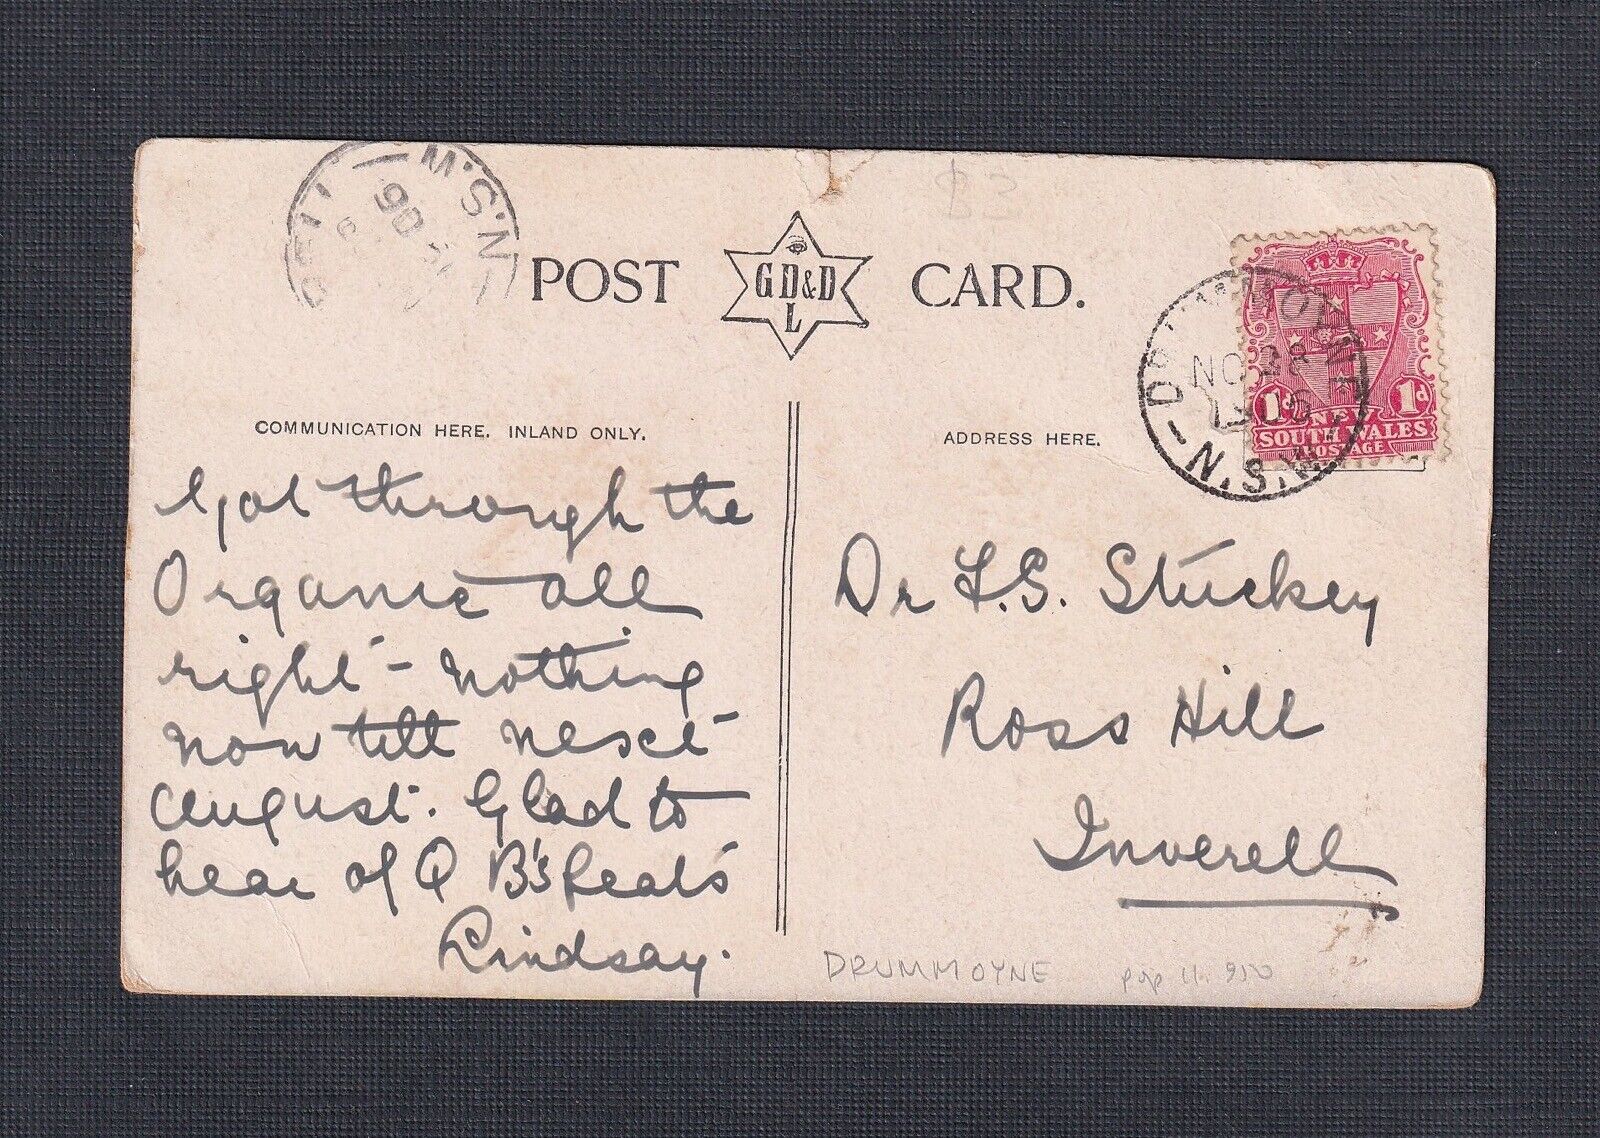 POST CARD.
G D & D
L
COMMUNICATION HERE. INLAND ONLY.
ADDRESS HERE.
Got through the
Organic all
right - nothing
now till next
August. Glad to
hear of Q B's feats
Lindsay.
Dr F.G. Stuckey
Ross Hill
Inverell
DRUMMOYNE
N.S.W
NO 28
1d 1d
NEW
SOUTH WALES
POSTAGE
N.S.W.
DRUMMOYNE pop 11.950
B3